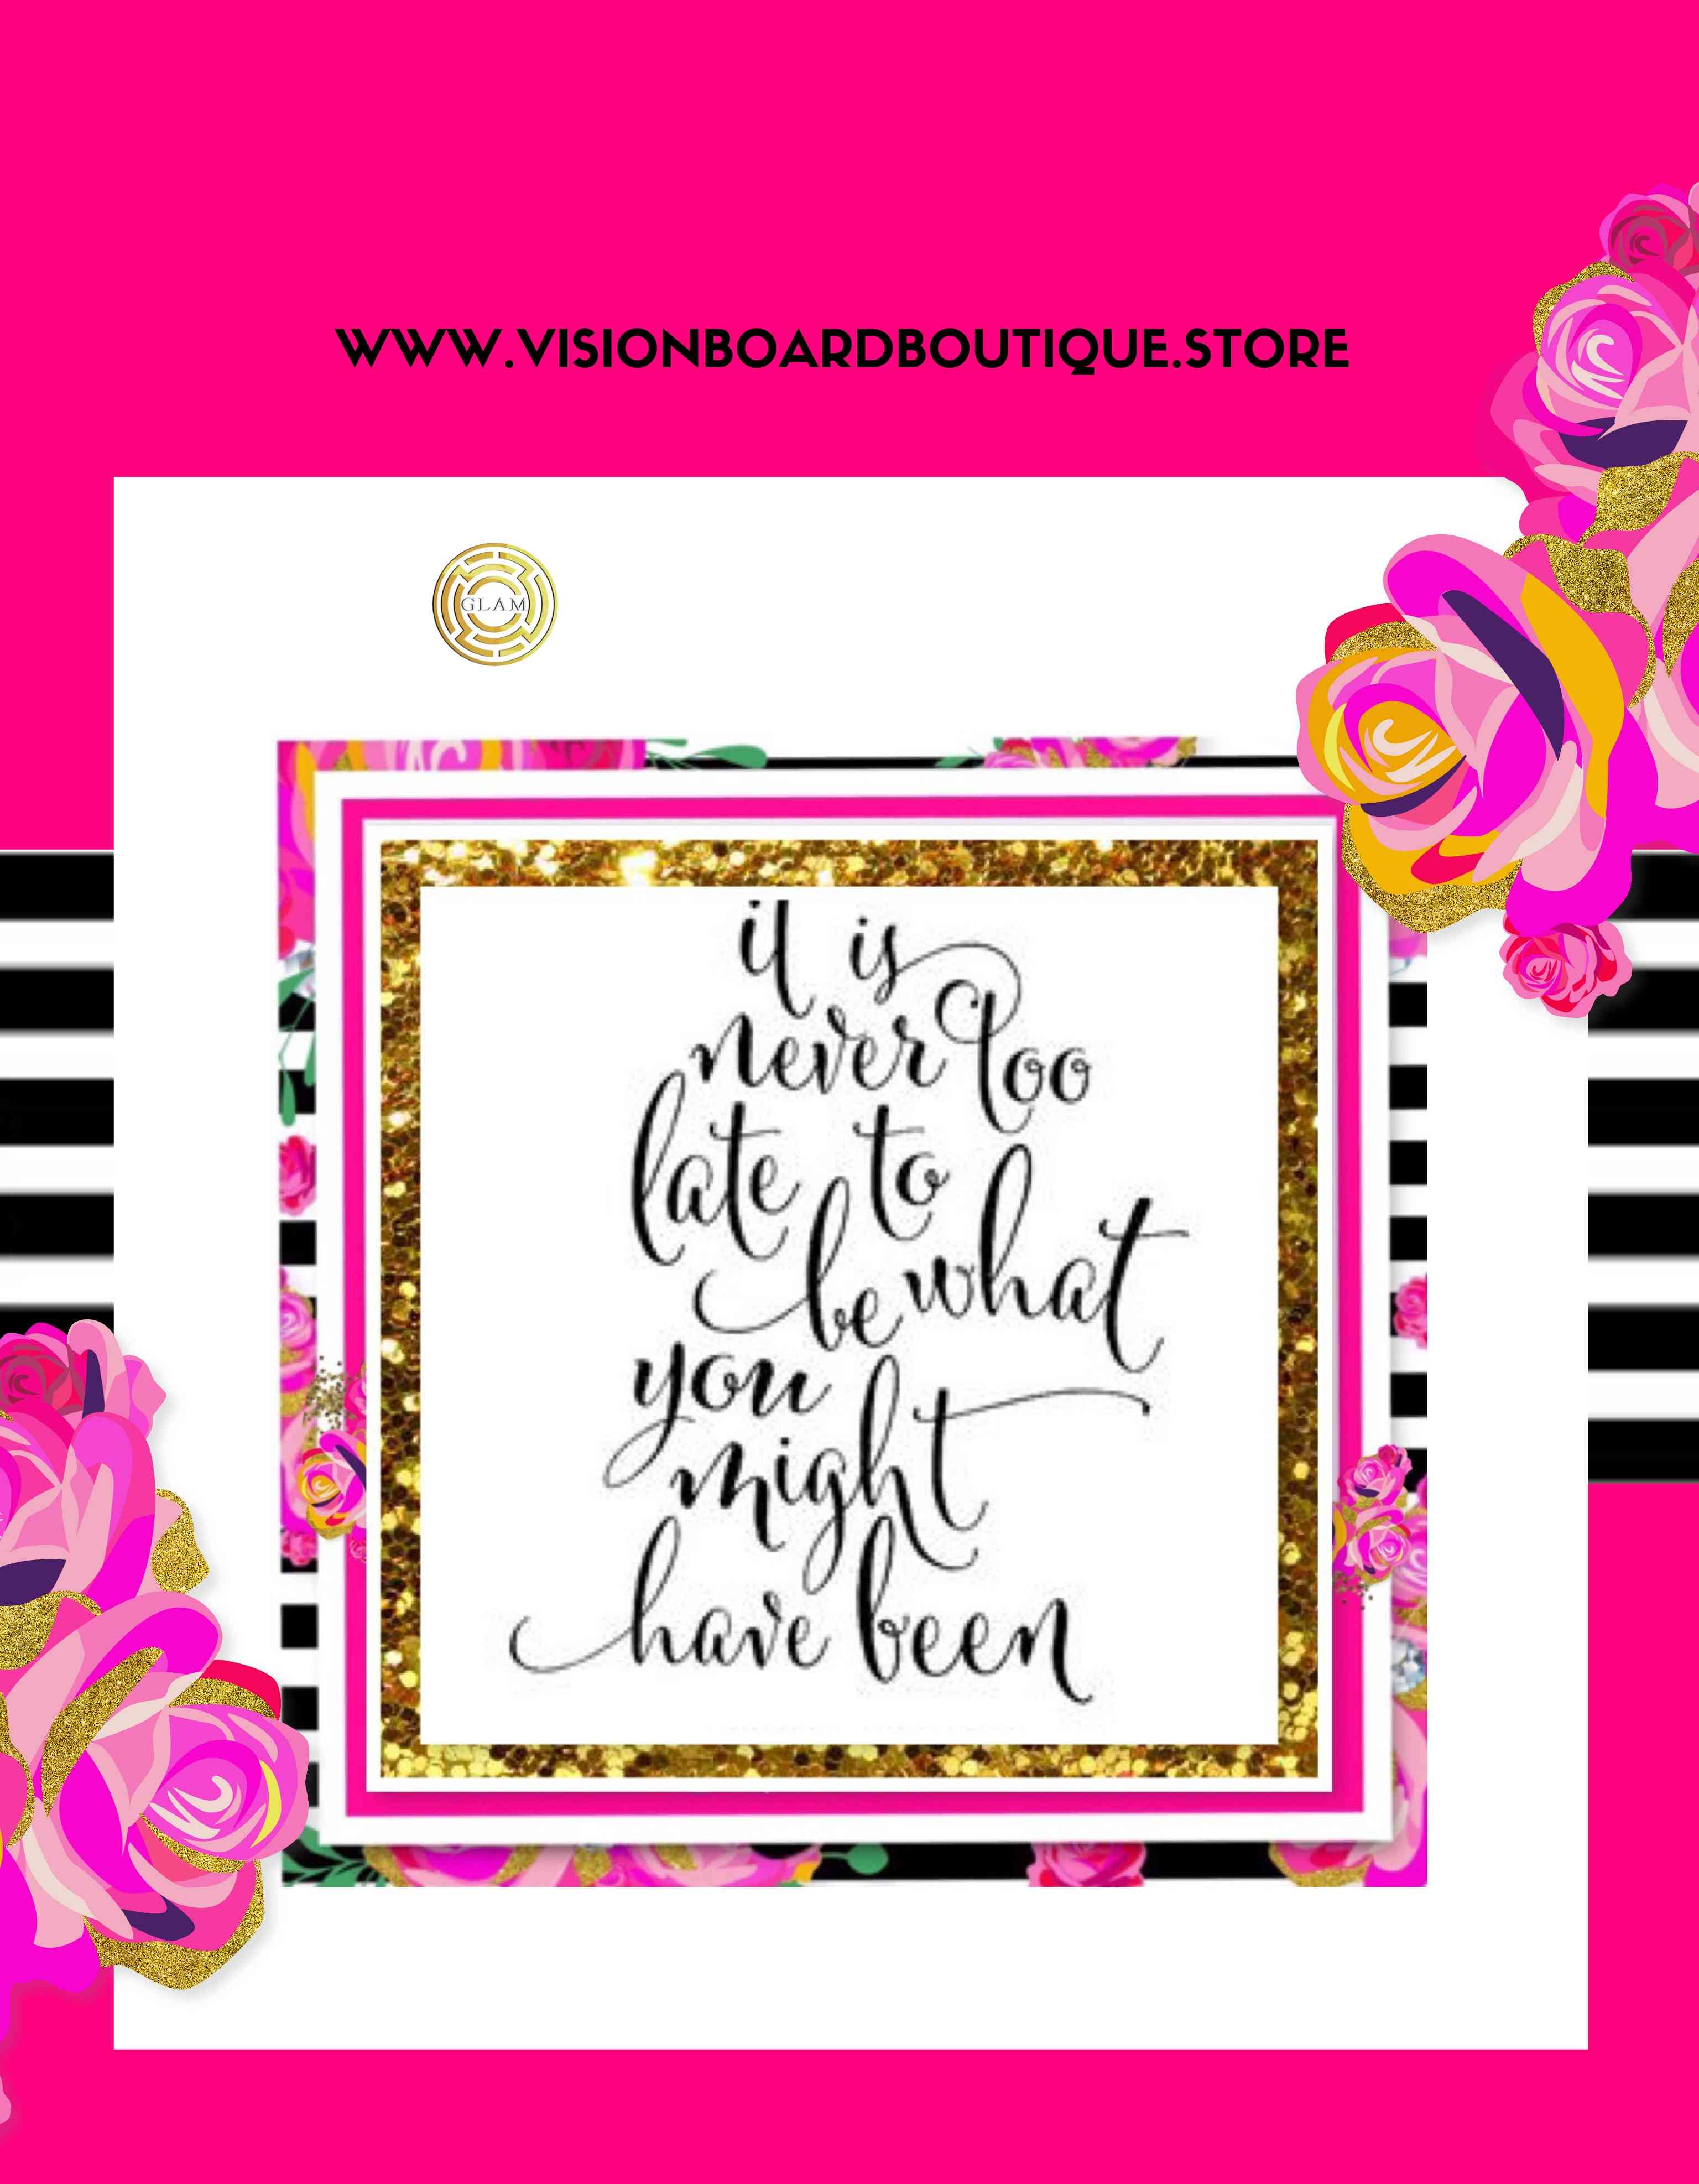 WWW.VISIONBOARDBOUTIQUE.STORE
GLAM
it is
never too
late to
be what
you
might
have been